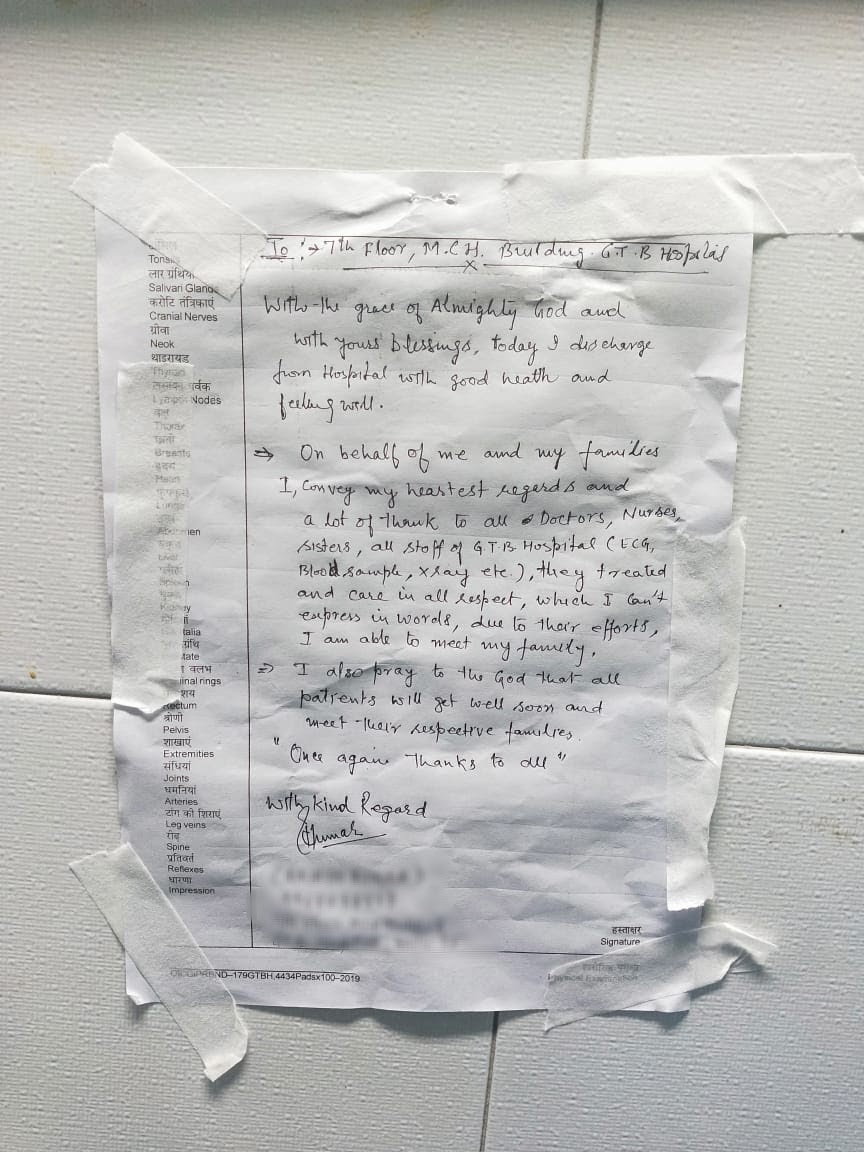 To :→ 7th Floor, M.C.H. Building. G.T.B Hospital
X
With the grace of Almighty God and
with yours blessings, today I discharge
from Hospital with good heath and
feeling well.
⇒ On behalf of me and my families
I, Convey my heartest regards and
a lot of thank to all Doctors, Nurses,
Sisters, all staff of G.T.B. Hospital (ECG,
Blood sample, xray etc.), they treated
and care in all respect, which I can't
express in words, due to their efforts,
I am able to meet my family.
⇒ I also pray to the God that all
patients will get well soon and
meet their respective families.
"Once again thanks to all"
with kind Regard
Tonsils
लार ग्रंथियां
Salivari Glands
करोटि तंत्रिकाएं
Cranial Nerves
ग्रीवा
Neok
थाइरायड
Thyroid
पर्वक
Lymph Nodes
Thorax
छाती
Breasts
हृदय
Heart
Lungs
Abdomen
Liver
Spleen
Kidney
italia
ग्रंथि
state
वलभ
uinal rings
शय
Rectum
श्रोणी
Pelvis
शाखाएं
Extremities
संधियां
Joints
धमनियां
Arteries
टांग की शिराएं
Leg veins
रीढ़
Spine
प्रतिवर्त
Reflexes
धारणा
Impression
हस्ताक्षर
Signature
ND–179GTBH,4434Padsx100–2019
Physical Examination